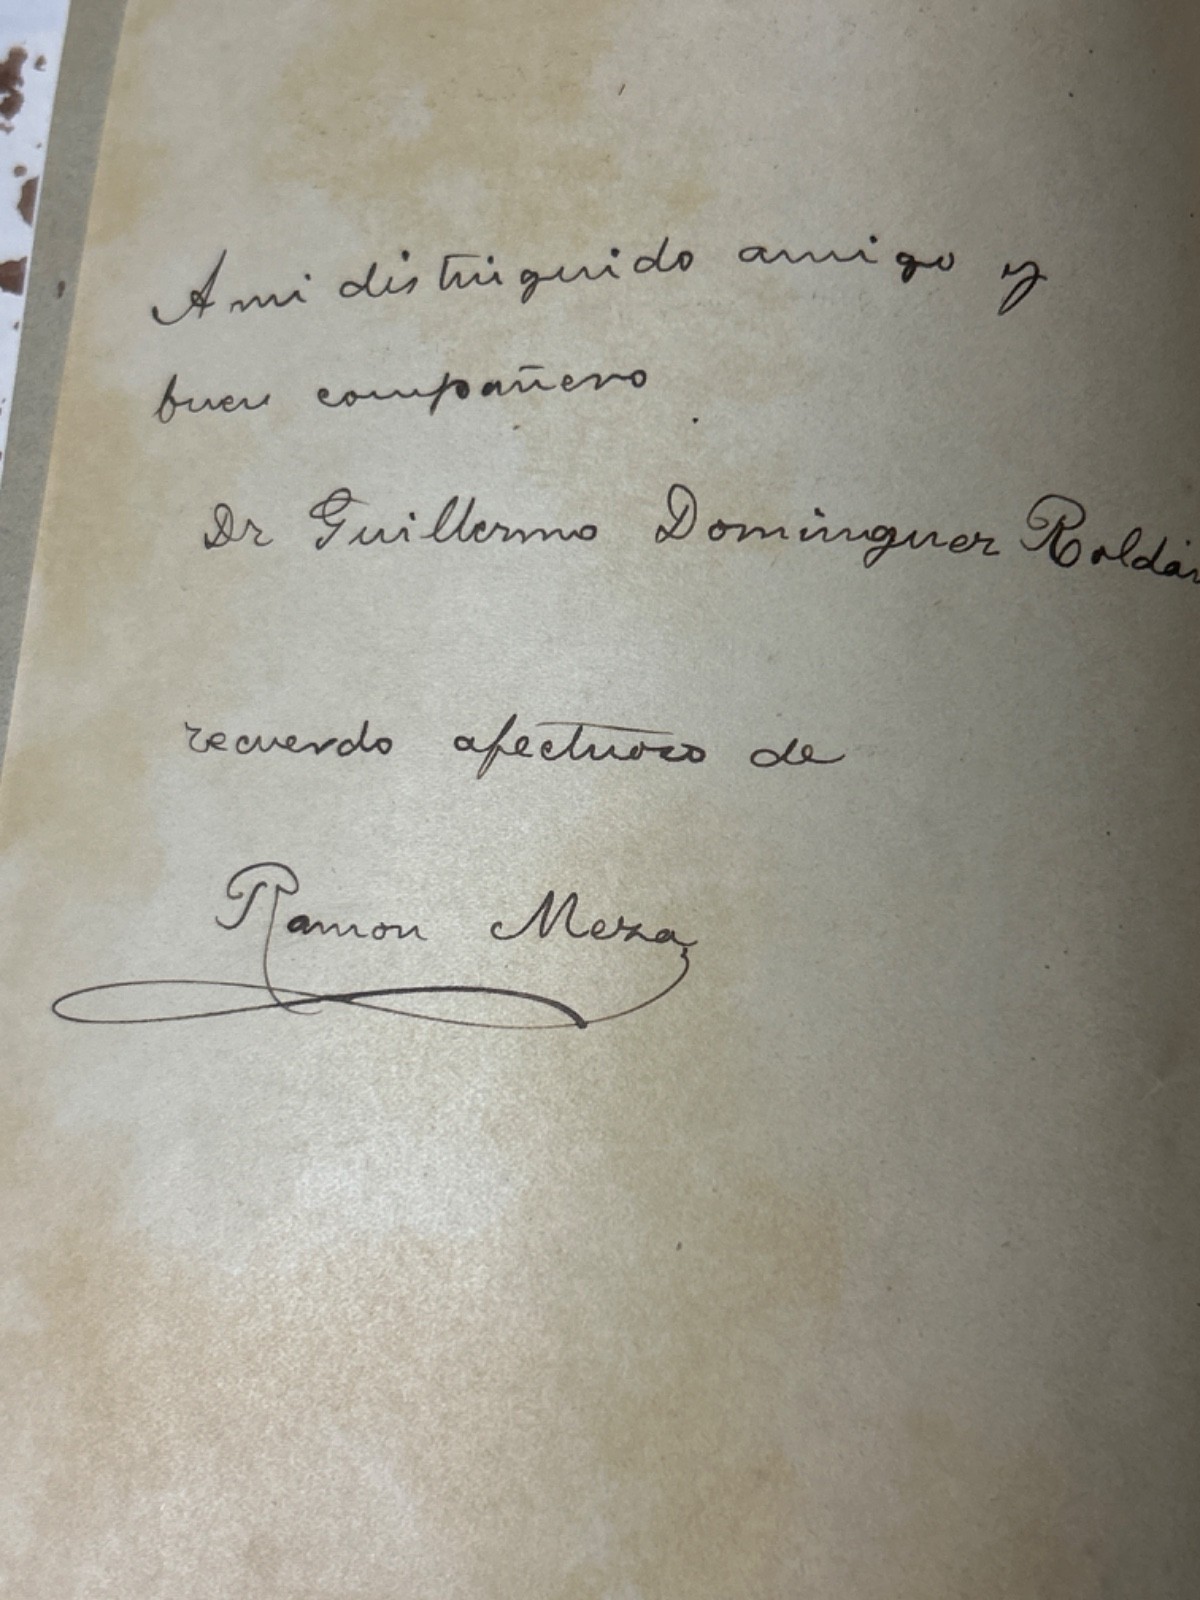 A mi distinguido amigo y
buen compañero
Dr Guillermo Dominguez Roldán
recuerdo afectuoso de
Ramon Meza